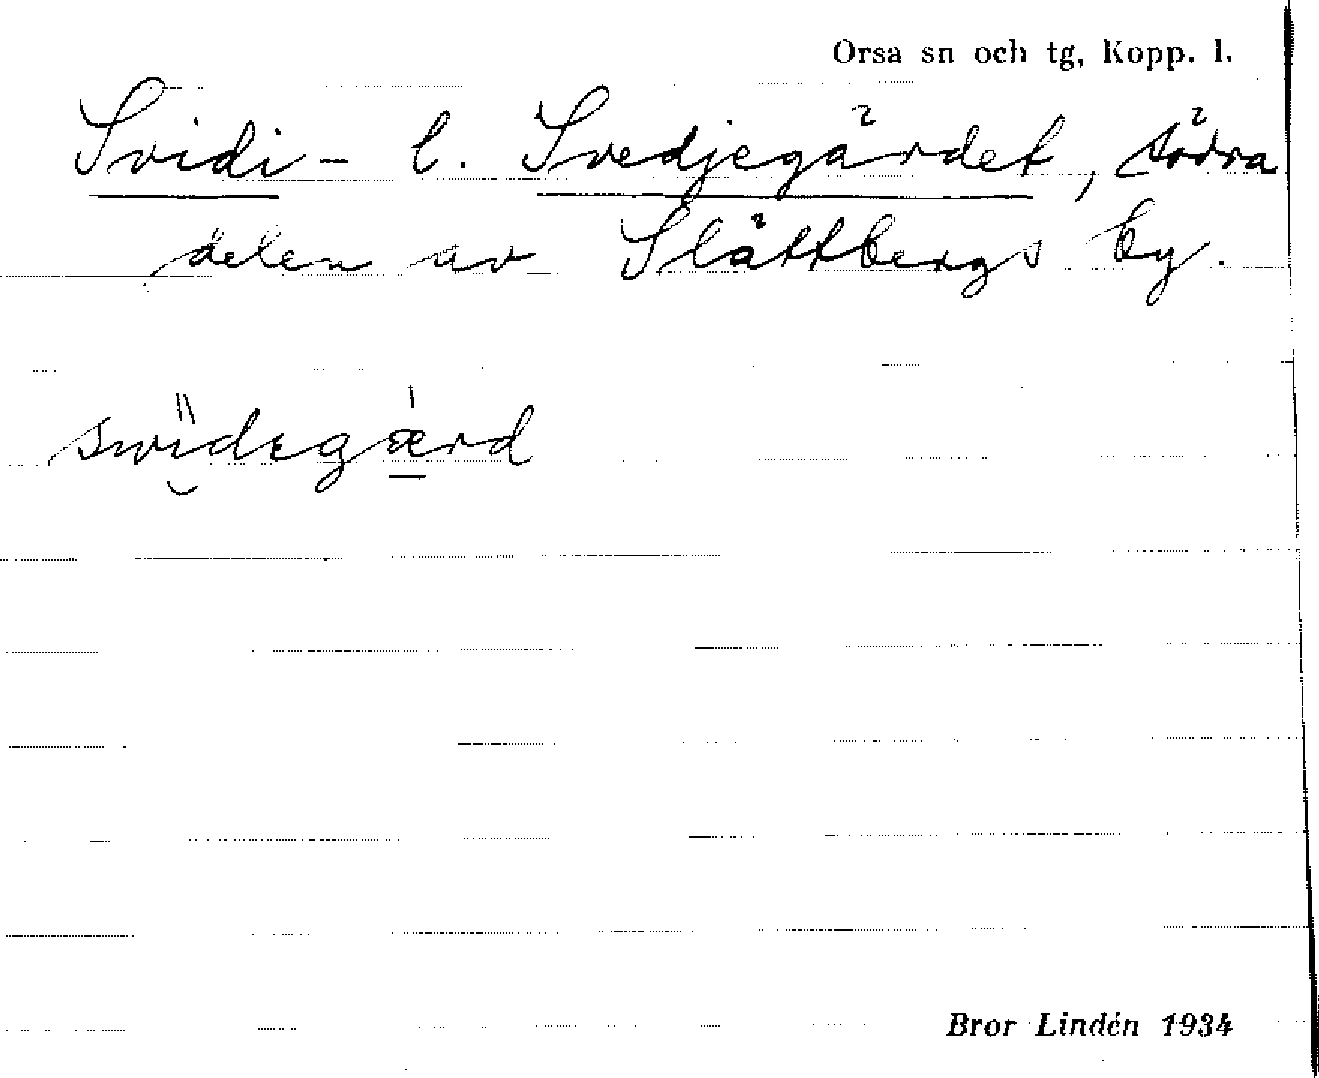 Orsa sn och tg, Kopp. l.
Svidi- l. Svedjegärdet, södra
delen av Slättbergs by.
swidegærd
Bror Lindén 1934